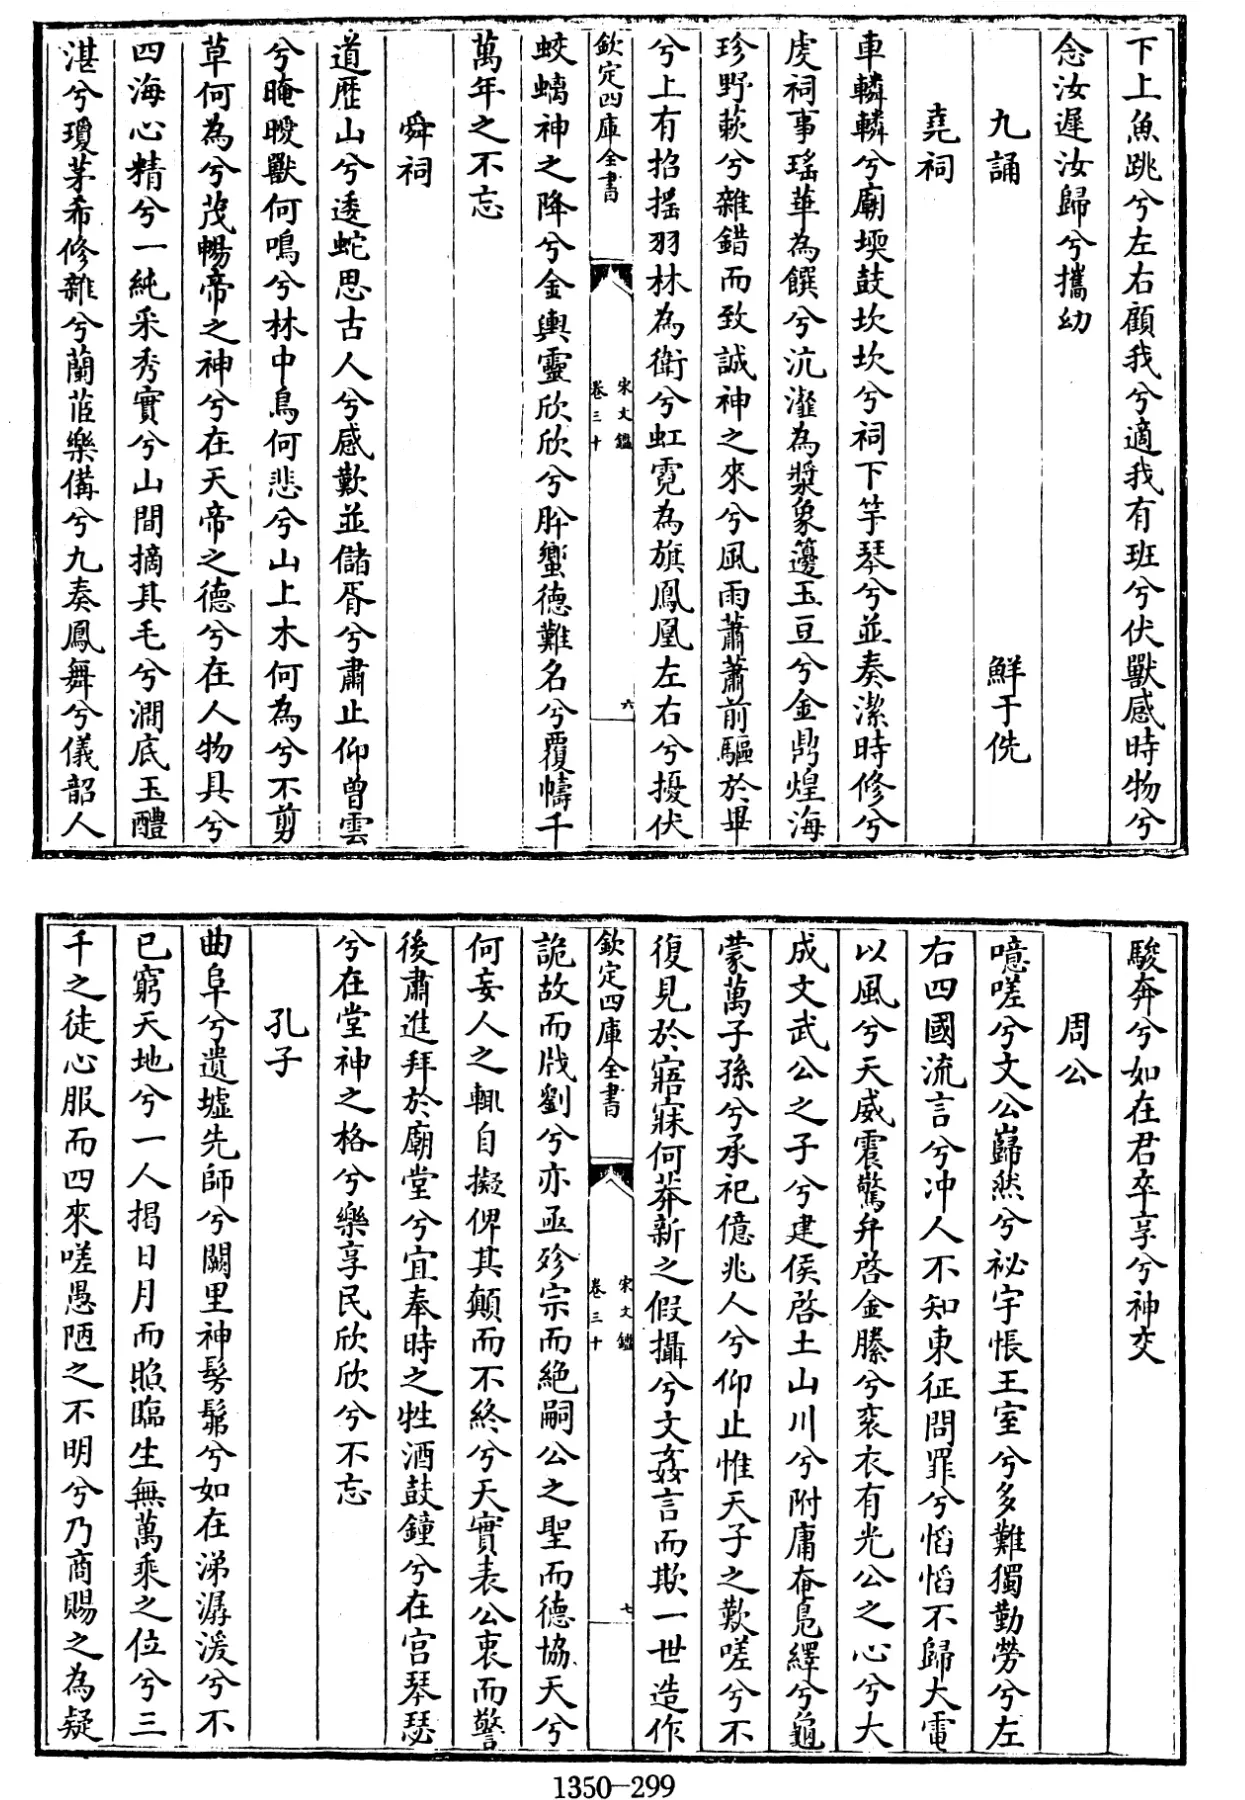 下上魚跳兮左右顧我兮適我有班兮伏獸感時物兮
念汝遲汝歸兮攜幼
九誦 鮮于侁
堯祠
車轔轔兮廟堧鼓坎坎兮祠下竽琴兮並奏潔時修兮
虔祠事瑤華為饌兮沆瀣為漿象籩玉豆兮金鼎煌海
珍野蔌兮雜錯而致誠神之來兮風雨蕭蕭前驅於畢
兮上有招搖羽林為衛兮虹霓為旗鳳凰左右兮擾伏
欽定四庫全書 宋文鑑 卷三十 六
蛟螭神之降兮金輿靈欣欣兮肸蠁德難名兮覆幬千
萬年之不忘
舜祠
道歴山兮逶蛇思古人兮感歎並儲胥兮肅止仰曾雲
兮晻曖獸何鳴兮林中鳥何悲兮山上木何為兮不剪
草何為兮茂暢帝之神兮在天帝之德兮在人物具兮
四海心精兮一純采秀實兮山間摘其毛兮澗底玉醴
湛兮瓊茅希修雜兮蘭茝樂備兮九奏鳳舞兮儀韶人
駿奔兮如在君卒享兮神交
周公
噫嗟兮文公巋然兮祕宇悵王室兮多難獨勤勞兮左
右四國流言兮冲人不知東征問罪兮慆慆不歸大電
以風兮天威震驚弁啓金縢兮衮衣有光公之心兮大
成文武公之子兮建侯啓土山川兮附庸奄鳧繹兮龜
蒙萬子孫兮承祀億兆人兮仰止惟天子之歎嗟兮不
復見於寤寐何莽新之假攝兮文姦言而欺一世造作
欽定四庫全書 宋文鑑 卷三十 七
詭故而戕劉兮亦亟殄宗而絶嗣公之聖而德協天兮
何妄人之輒自擬俾其顛而不終兮天實表公衷而警
後肅進拜於廟堂兮宜奉時之牲酒鼓鐘兮在宫琴瑟
兮在堂神之格兮樂享民欣欣兮不忘
孔子
曲阜兮遺墟先師兮闕里神髣髴兮如在涕潺湲兮不
已窮天地兮一人揭日月而照臨生無萬乘之位兮三
千之徒心服而四來嗟愚陋之不明兮乃商賜之為疑
1350—299